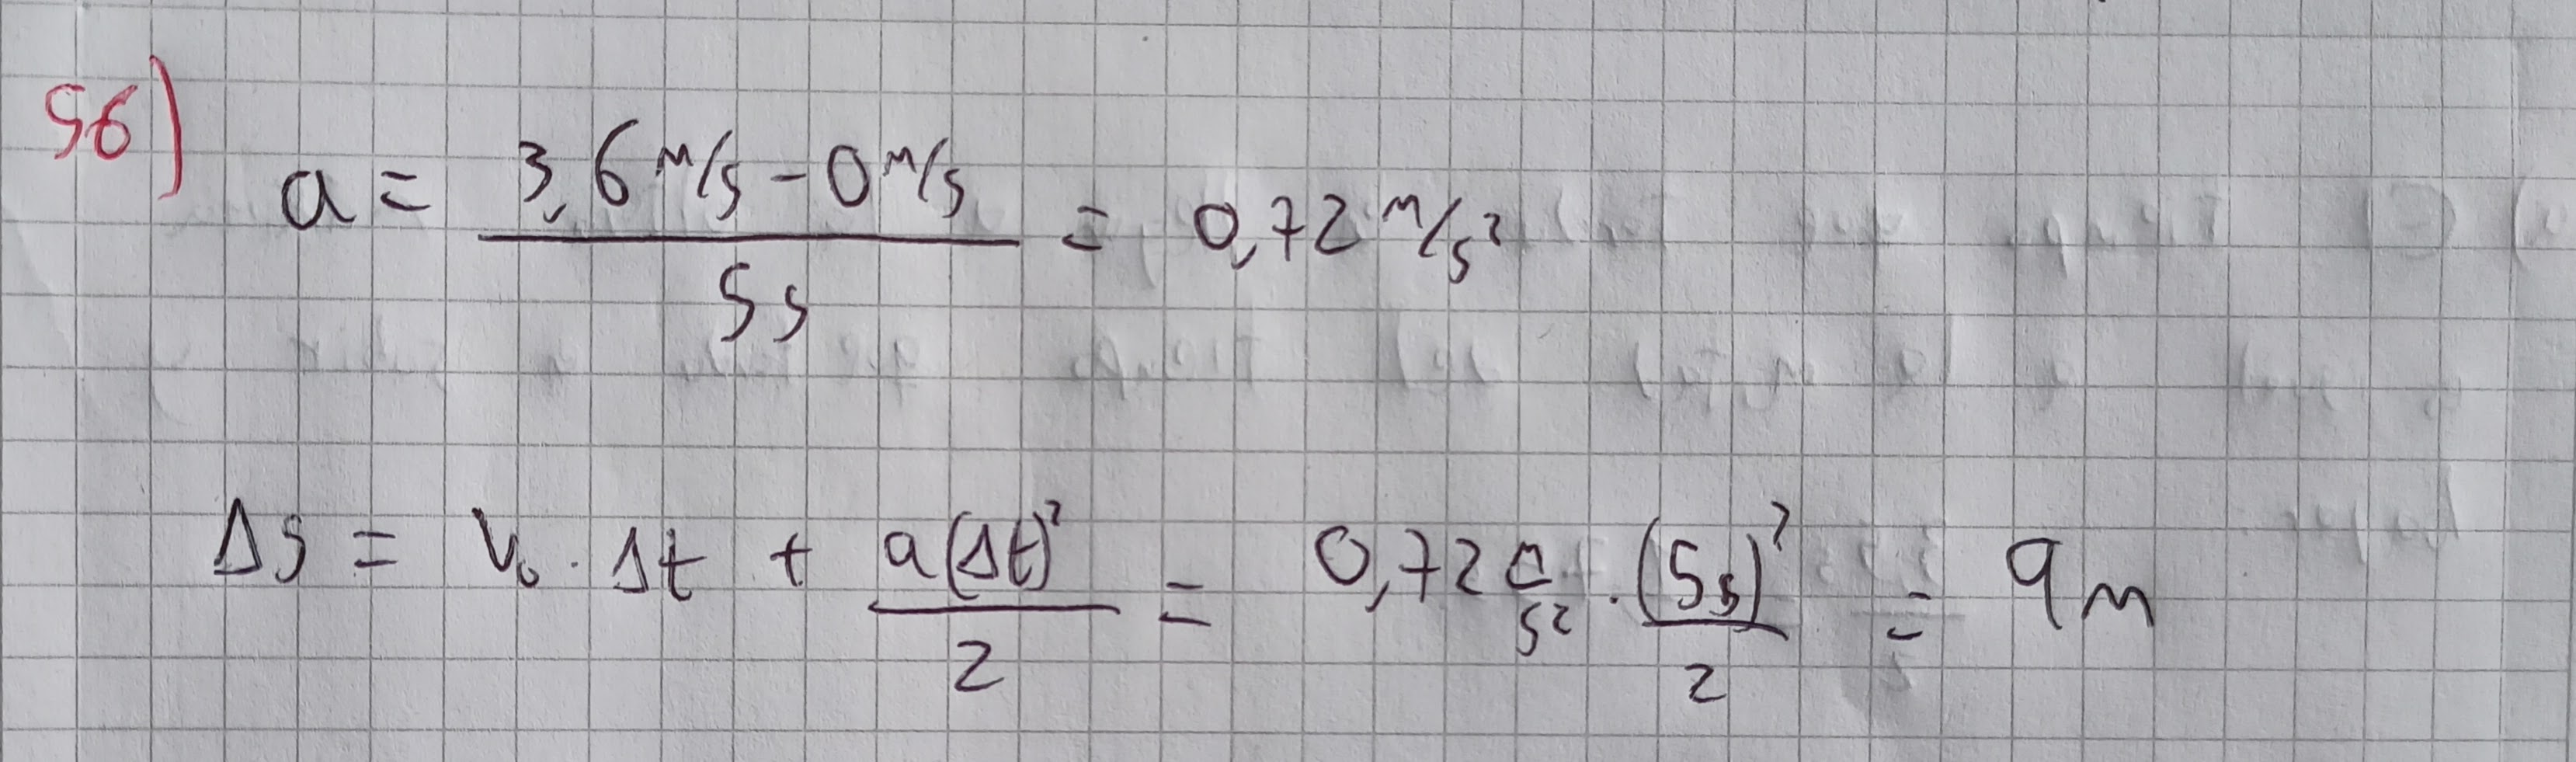 56)
a = (3,6 m/s - 0 m/s) / 5s = 0,72 m/s²
Δs = V₀ · Δt + a(Δt)² / 2 = 0,72 m/s² · (5s)² / 2 = 9m